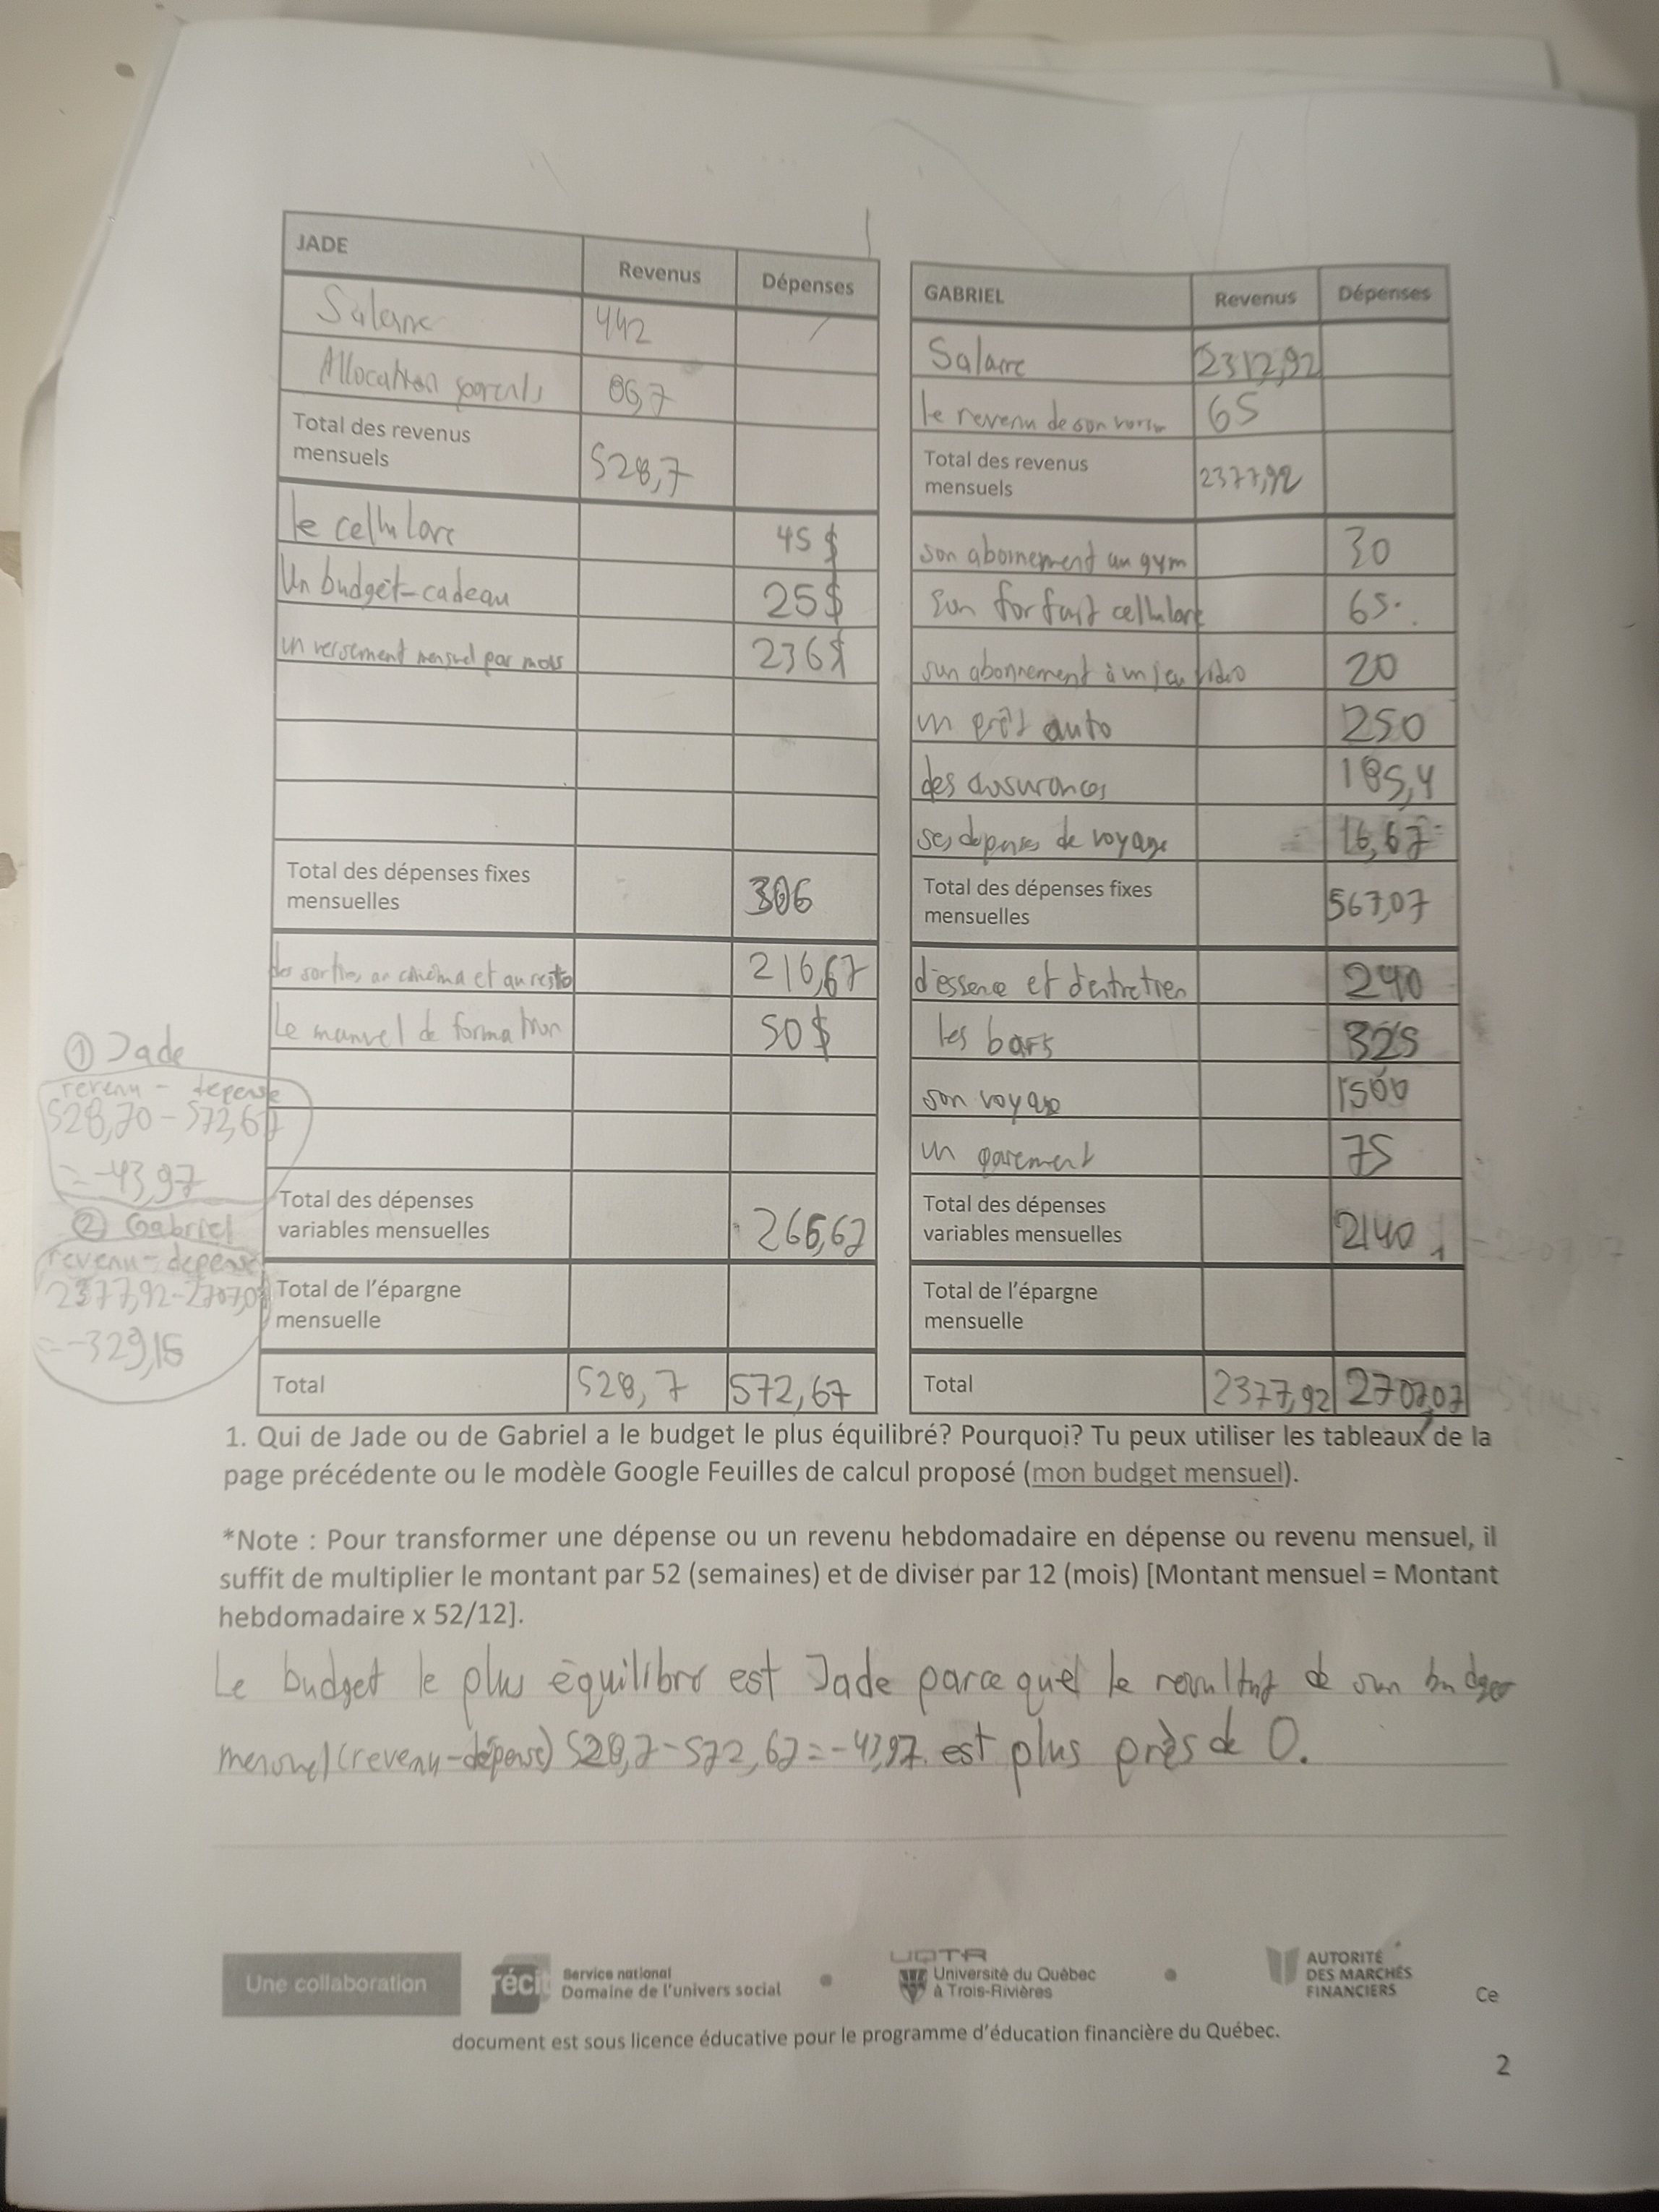 JADE Revenus Dépenses
Salaire 442
Allocation parents 86,7
Total des revenus
mensuels 528,7
le cellulare 45 $
Un budget-cadeau 25$
un versement mensuel par mois 236$
Total des dépenses fixes
mensuelles 306
des sorties au cinéma et au resto 216,67
Le manuel de formation 50 $
Total des dépenses
variables mensuelles 266,67
Total de l'épargne
mensuelle
Total 528,7 572,67
GABRIEL Revenus Dépenses
Salaire 2312,92
le revenu de son voisin 65
Total des revenus
mensuels 2377,92
son abonnement au gym 30
Son forfait cellulare 65
son abonnement à un jeu vidéo 20
un prêt auto 250
des assurances 185,4
ses dépenses de voyage 16,67
Total des dépenses fixes
mensuelles 567,07
d'essence et d'entretien 240
les bars 325
son voyage 1500
un paiement 75
Total des dépenses
variables mensuelles 2140
Total de l'épargne
mensuelle
Total 2377,92 2707,07
① Jade
revenu - depense
528,70 - 572,67
= -43,97
② Gabriel
revenu - depense
2377,92-2707,07
= -329,15
1. Qui de Jade ou de Gabriel a le budget le plus équilibré? Pourquoi? Tu peux utiliser les tableaux de la
page précédente ou le modèle Google Feuilles de calcul proposé (mon budget mensuel).
*Note : Pour transformer une dépense ou un revenu hebdomadaire en dépense ou revenu mensuel, il
suffit de multiplier le montant par 52 (semaines) et de diviser par 12 (mois) [Montant mensuel = Montant
hebdomadaire x 52/12].
Le budget le plus équilibré est Jade parce quel le resultat de son budget
mensuel (revenu-dépense) 528,7-572,67=-43,97. est plus près de 0.
Une collaboration
récit
Service national
Domaine de l'univers social
UQTR
Université du Québec
à Trois-Rivières
AUTORITÉ
DES MARCHÉS
FINANCIERS
Ce
document est sous licence éducative pour le programme d'éducation financière du Québec.
2